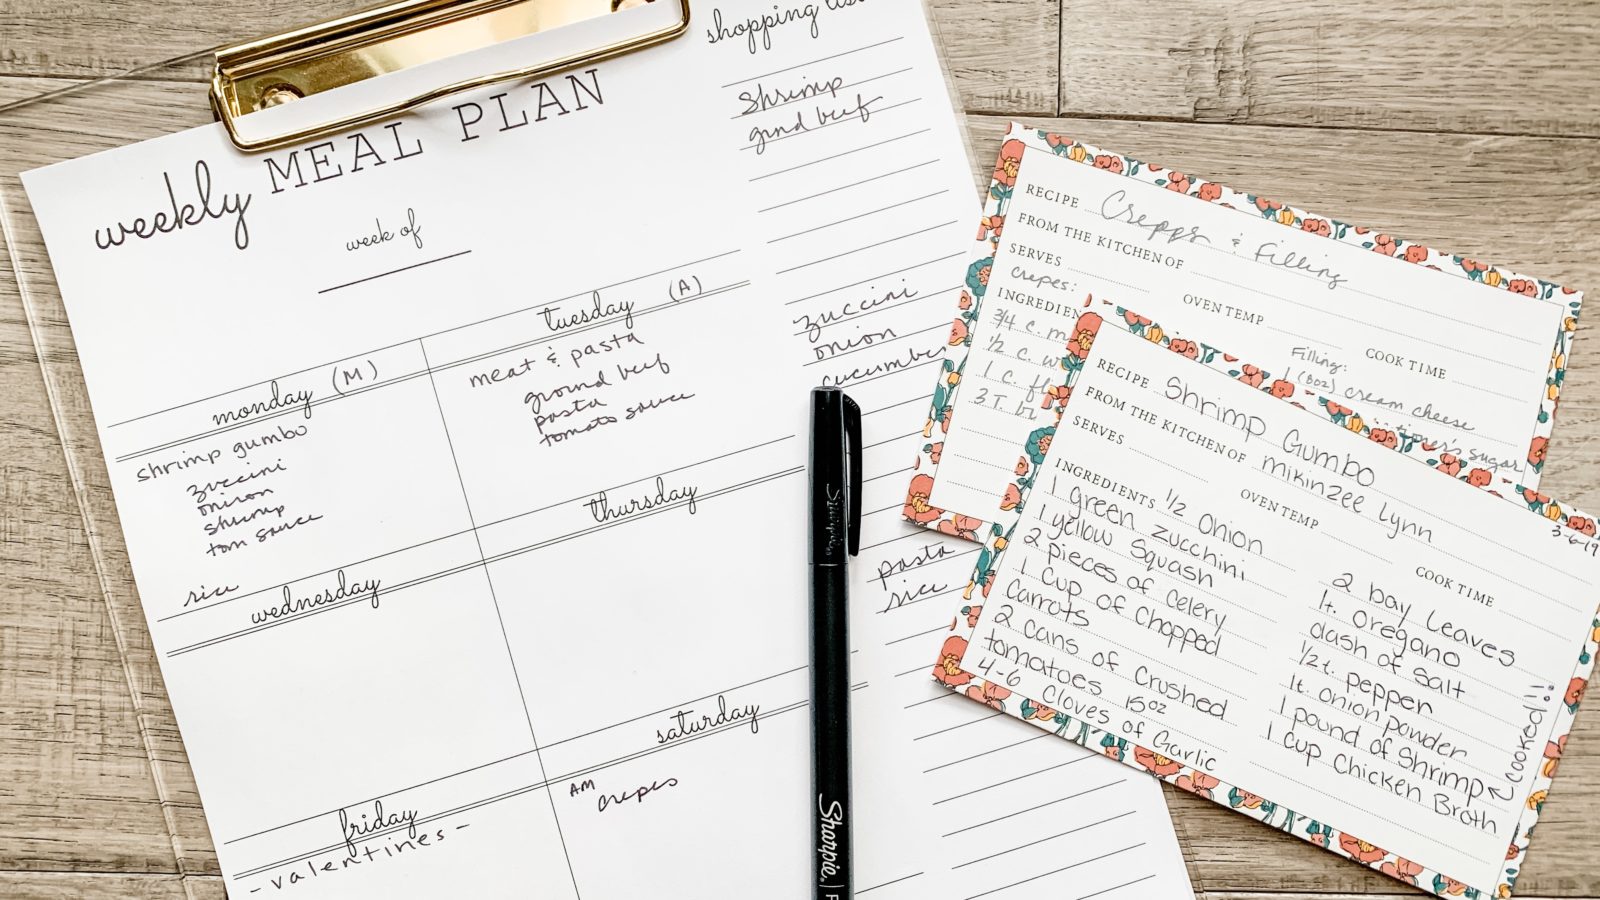 weekly MEAL PLAN
week of
monday (M)
shrimp gumbo
zuccini
onion
shrimp
tom sauce
rice
tuesday (A)
meat & pasta
ground beef
pasta
tomato sauce
wednesday
thursday
friday
- valentines -
saturday
AM
crepes
shopping list
shrimp
grnd beef
zuccini
onion
cucumber
pasta
rice
Sharpie
Sharpie.
RECIPE Crepps & Filling
FROM THE KITCHEN OF
SERVES
OVEN TEMP
COOK TIME
crepes:
3/4 c. m
1/2 c. w
1 c. fl
3 T. bu
Filling:
1 (8oz) cream cheese
sugar
RECIPE Shrimp Gumbo
FROM THE KITCHEN OF mikinzee Lynn
SERVES
OVEN TEMP
COOK TIME
3-6-19
INGREDIENTS 1/2 Onion
1 green zucchini
1 yellow Squash
2 pieces of celery
1 cup of chopped
carrots
2 cans of crushed
tomatoes 15oz
4-6 cloves of Garlic
2 bay leaves
1t. oregano
dash of salt
1/2 t. pepper
1t. onion powder
1 pound of shrimp
1 cup chicken Broth
cooked!!